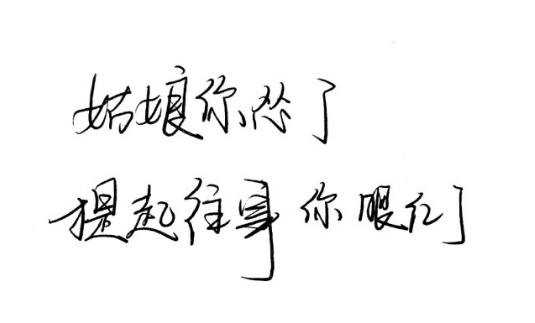 姑娘你怂了
提起往事 你眼红了